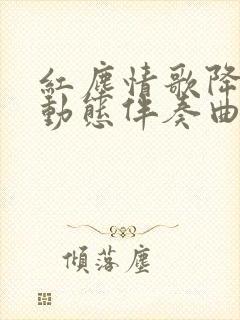 紅塵情歌降
動態伴奏曲
傾落塵